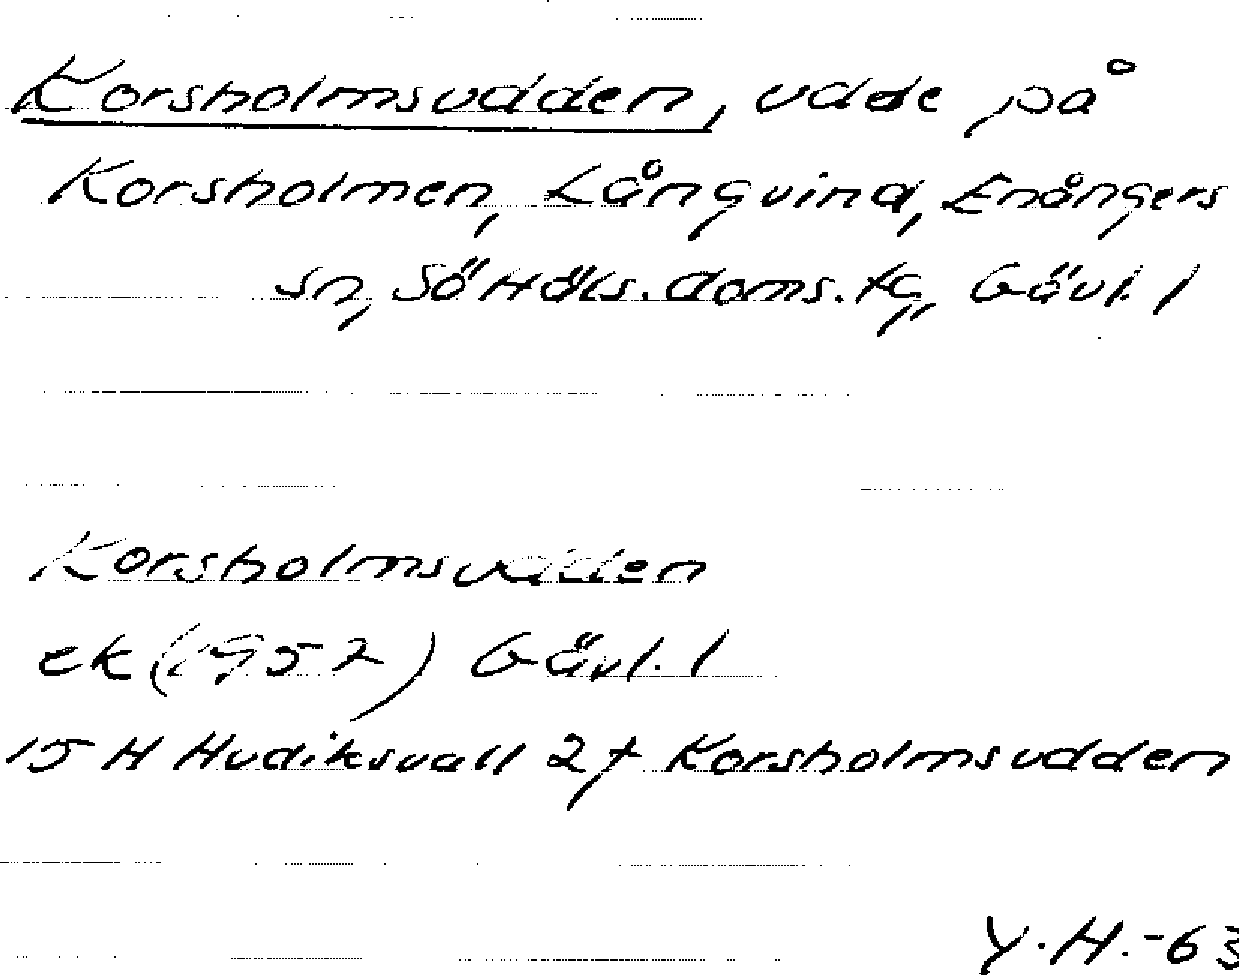 Korsholmsudden, udde på
Korsholmen, Långvind, Enångers
sn, SöHäls. doms. tg, Gävl. l
Korsholmsudden
ek (1952) Gävl. l
15 H Hudiksvall 2f Korsholmsudden
Y.H.-63